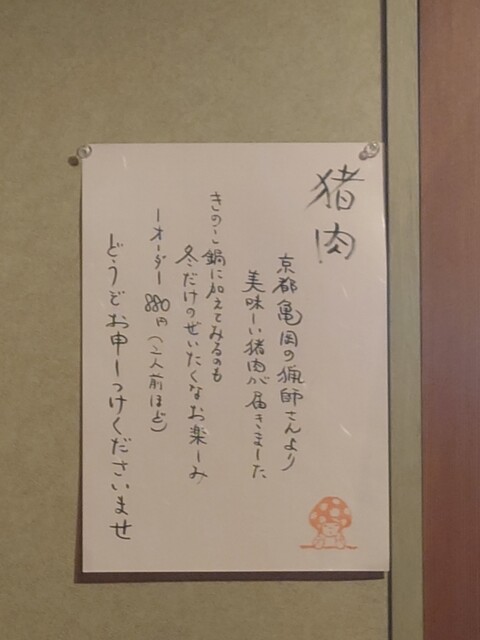 猪肉
京都亀岡の猟師さんより
美味しい猪肉が届きました
きのこ鍋に加えてみるのも
冬だけのぜいたくなお楽しみ
一オーダー 880円(二人前ほど)
どうぞお申しつけくださいませ